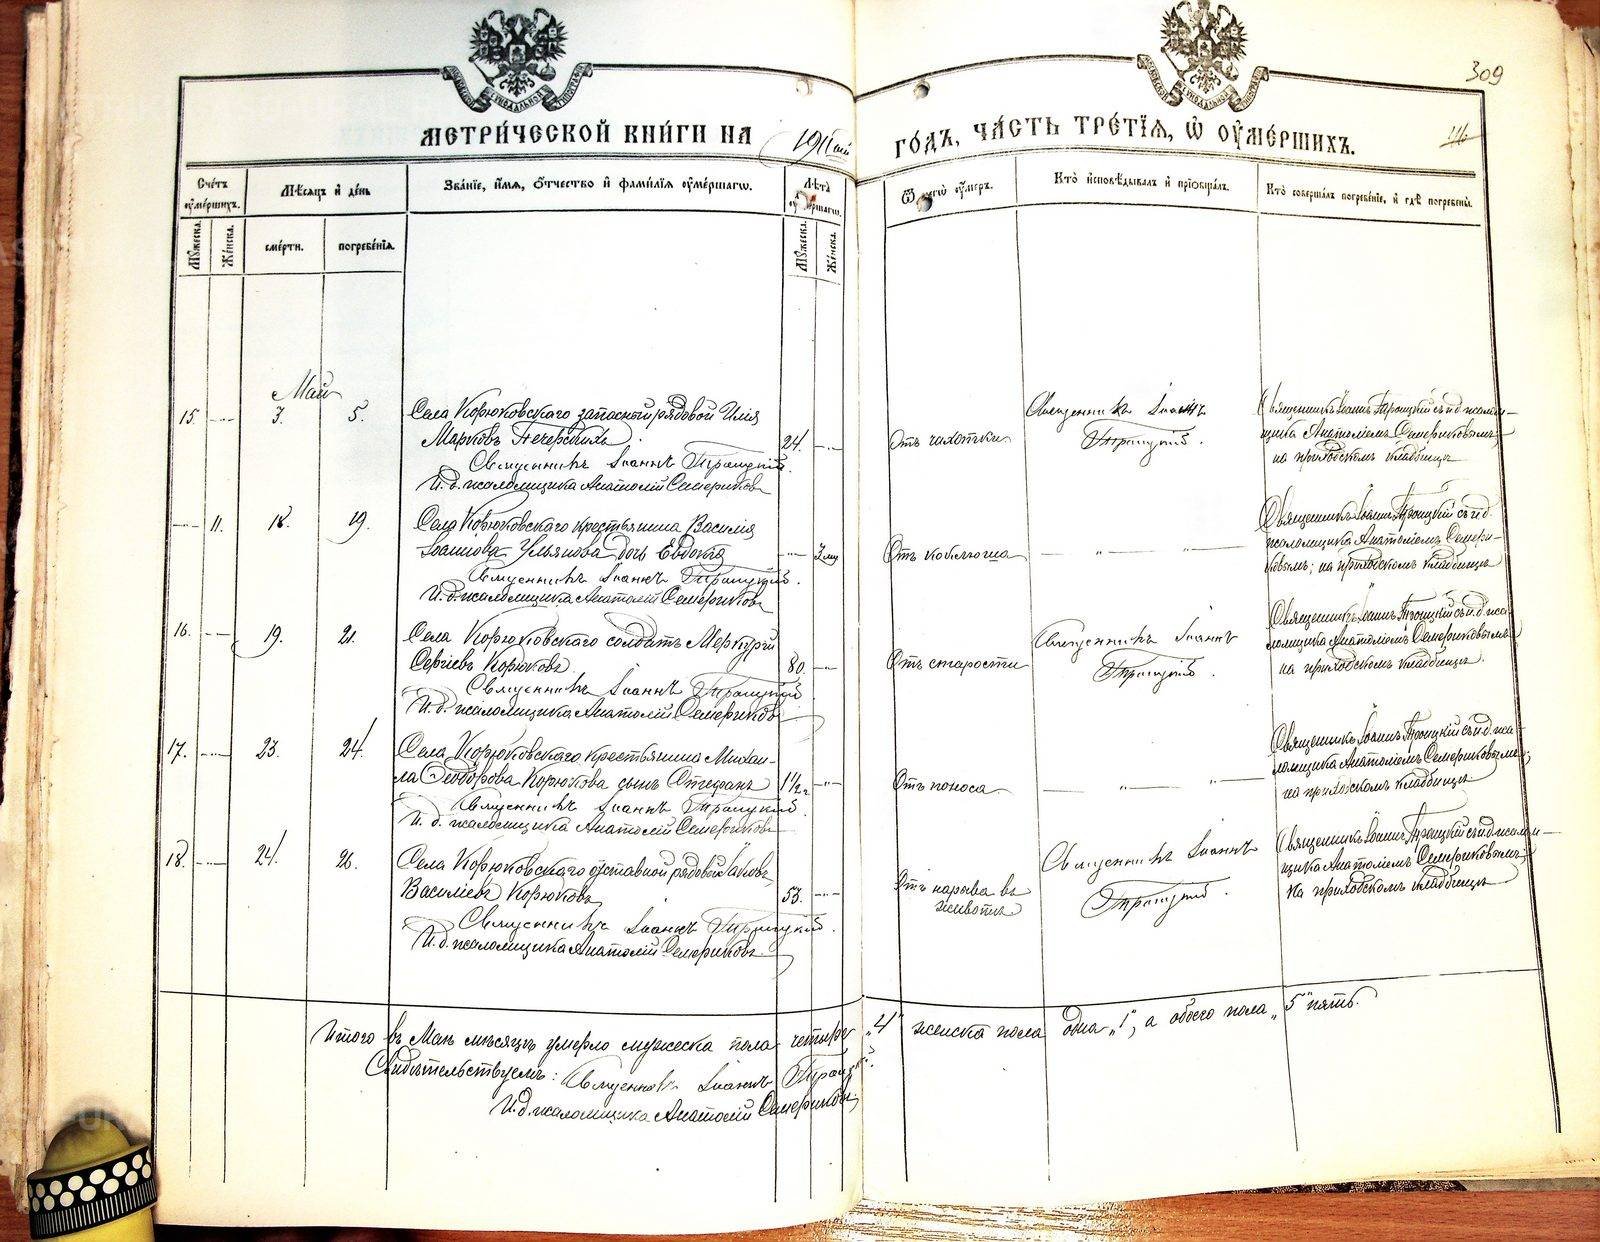 309
116
МЕТРИ́ЧЕСКОЙ КНИ́ГИ НА 1911ый ГО́ДЪ, ЧА́СТЬ ТРЕ́ТІѦ, Ѡ҆ ОУ҆МЕ́РШИХЪ.
Сче́тъ оу҆ме́ршихъ.
Мѣсѧцъ и҆ де́нь
Зва́нїе, и҆́мѧ, ѻ҆́тчество и҆ фами́лїѧ оу҆ме́ршагѡ.
Лѣ́та оу҆ме́ршагѡ.
Ѿ чегѡ̀ оу҆́меръ.
Кто̀ и҆сповѣ́дывалъ и҆ прїѻбща́лъ.
Кто̀ соверша́лъ погребе́нїе, и҆ гдѣ̀ погребены̀.
Мꙋ́жеска.
Же́нска.
сме́рти.
погребе́нїѧ.
Мꙋ́жеска.
Же́нска.
Май
15. 3. 5. Села Корюковскаго запасный рядовой Илія
Марковъ Печерскихъ 24.
Священникъ Іоаннъ Троицкій.
И. д. псаломщика Анатолій Семериковъ
Отъ чахотки
Священникъ Іоаннъ
Троицкій.
Священникъ Іоаннъ Троицкій съ и.д. псалом-
щика Анатоліемъ Семериковымъ;
на приходскомъ кладбищѣ
11. 18. 19. Села Корюковскаго крестьянина Василія
Іоаннова Ульянова дочь Евдокія
Священникъ Іоаннъ Троицкій.
И. д. псаломщика Анатолій Семериковъ
Отъ коклюша
— „ — „ —
Священникъ Іоаннъ Троицкій съ и.д.
псаломщика Анатоліемъ Семери-
ковымъ; на приходскомъ кладбищѣ
16. 19. 21. Села Корюковскаго солдатъ Меркурій
Сергіевъ Корюковъ 80.
Священникъ Іоаннъ Троицкій
И. д. псаломщика Анатолій Семериковъ
Отъ старости
Священникъ Іоаннъ
Троицкій.
Священникъ Іоаннъ Троицкій съ и.д. пса-
ломщика Анатоліемъ Семериковымъ
на приходскомъ кладбищѣ.
17. 23. 24. Села Корюковскаго крестьянина Михаи-
ла Ѳеодорова Корюкова сынъ Стефанъ 1½ г.
Священникъ Іоаннъ Троицкій.
И. д. псаломщика Анатолій Семериковъ
Отъ поноса
— „ — „ —
Священникъ Іоаннъ Троицкій съ и.д. пса-
ломщика Анатоліемъ Семериковымъ;
на приходскомъ кладбищѣ
18. 24. 26. Села Корюковскаго отставной рядовой Іаковъ
Василіевъ Корюковъ 53.
Священникъ Іоаннъ Троицкій.
И. д. псаломщика Анатолій Семериковъ.
Отъ нарыва въ
животѣ
Священникъ Іоаннъ
Троицкій.
Священникъ Іоаннъ Троицкій съ и.д. псалом-
щика Анатоліемъ Семериковымъ;
на приходскомъ кладбищѣ
Итого въ Маѣ мѣсяцѣ умерло мужеска пола четыре „4“ женска пола одна „1“, а обоего пола „5“ пять.
Свидѣтельствуемъ: Священникъ Іоаннъ Троицкій.
И. д. псаломщика Анатолій Семериковъ